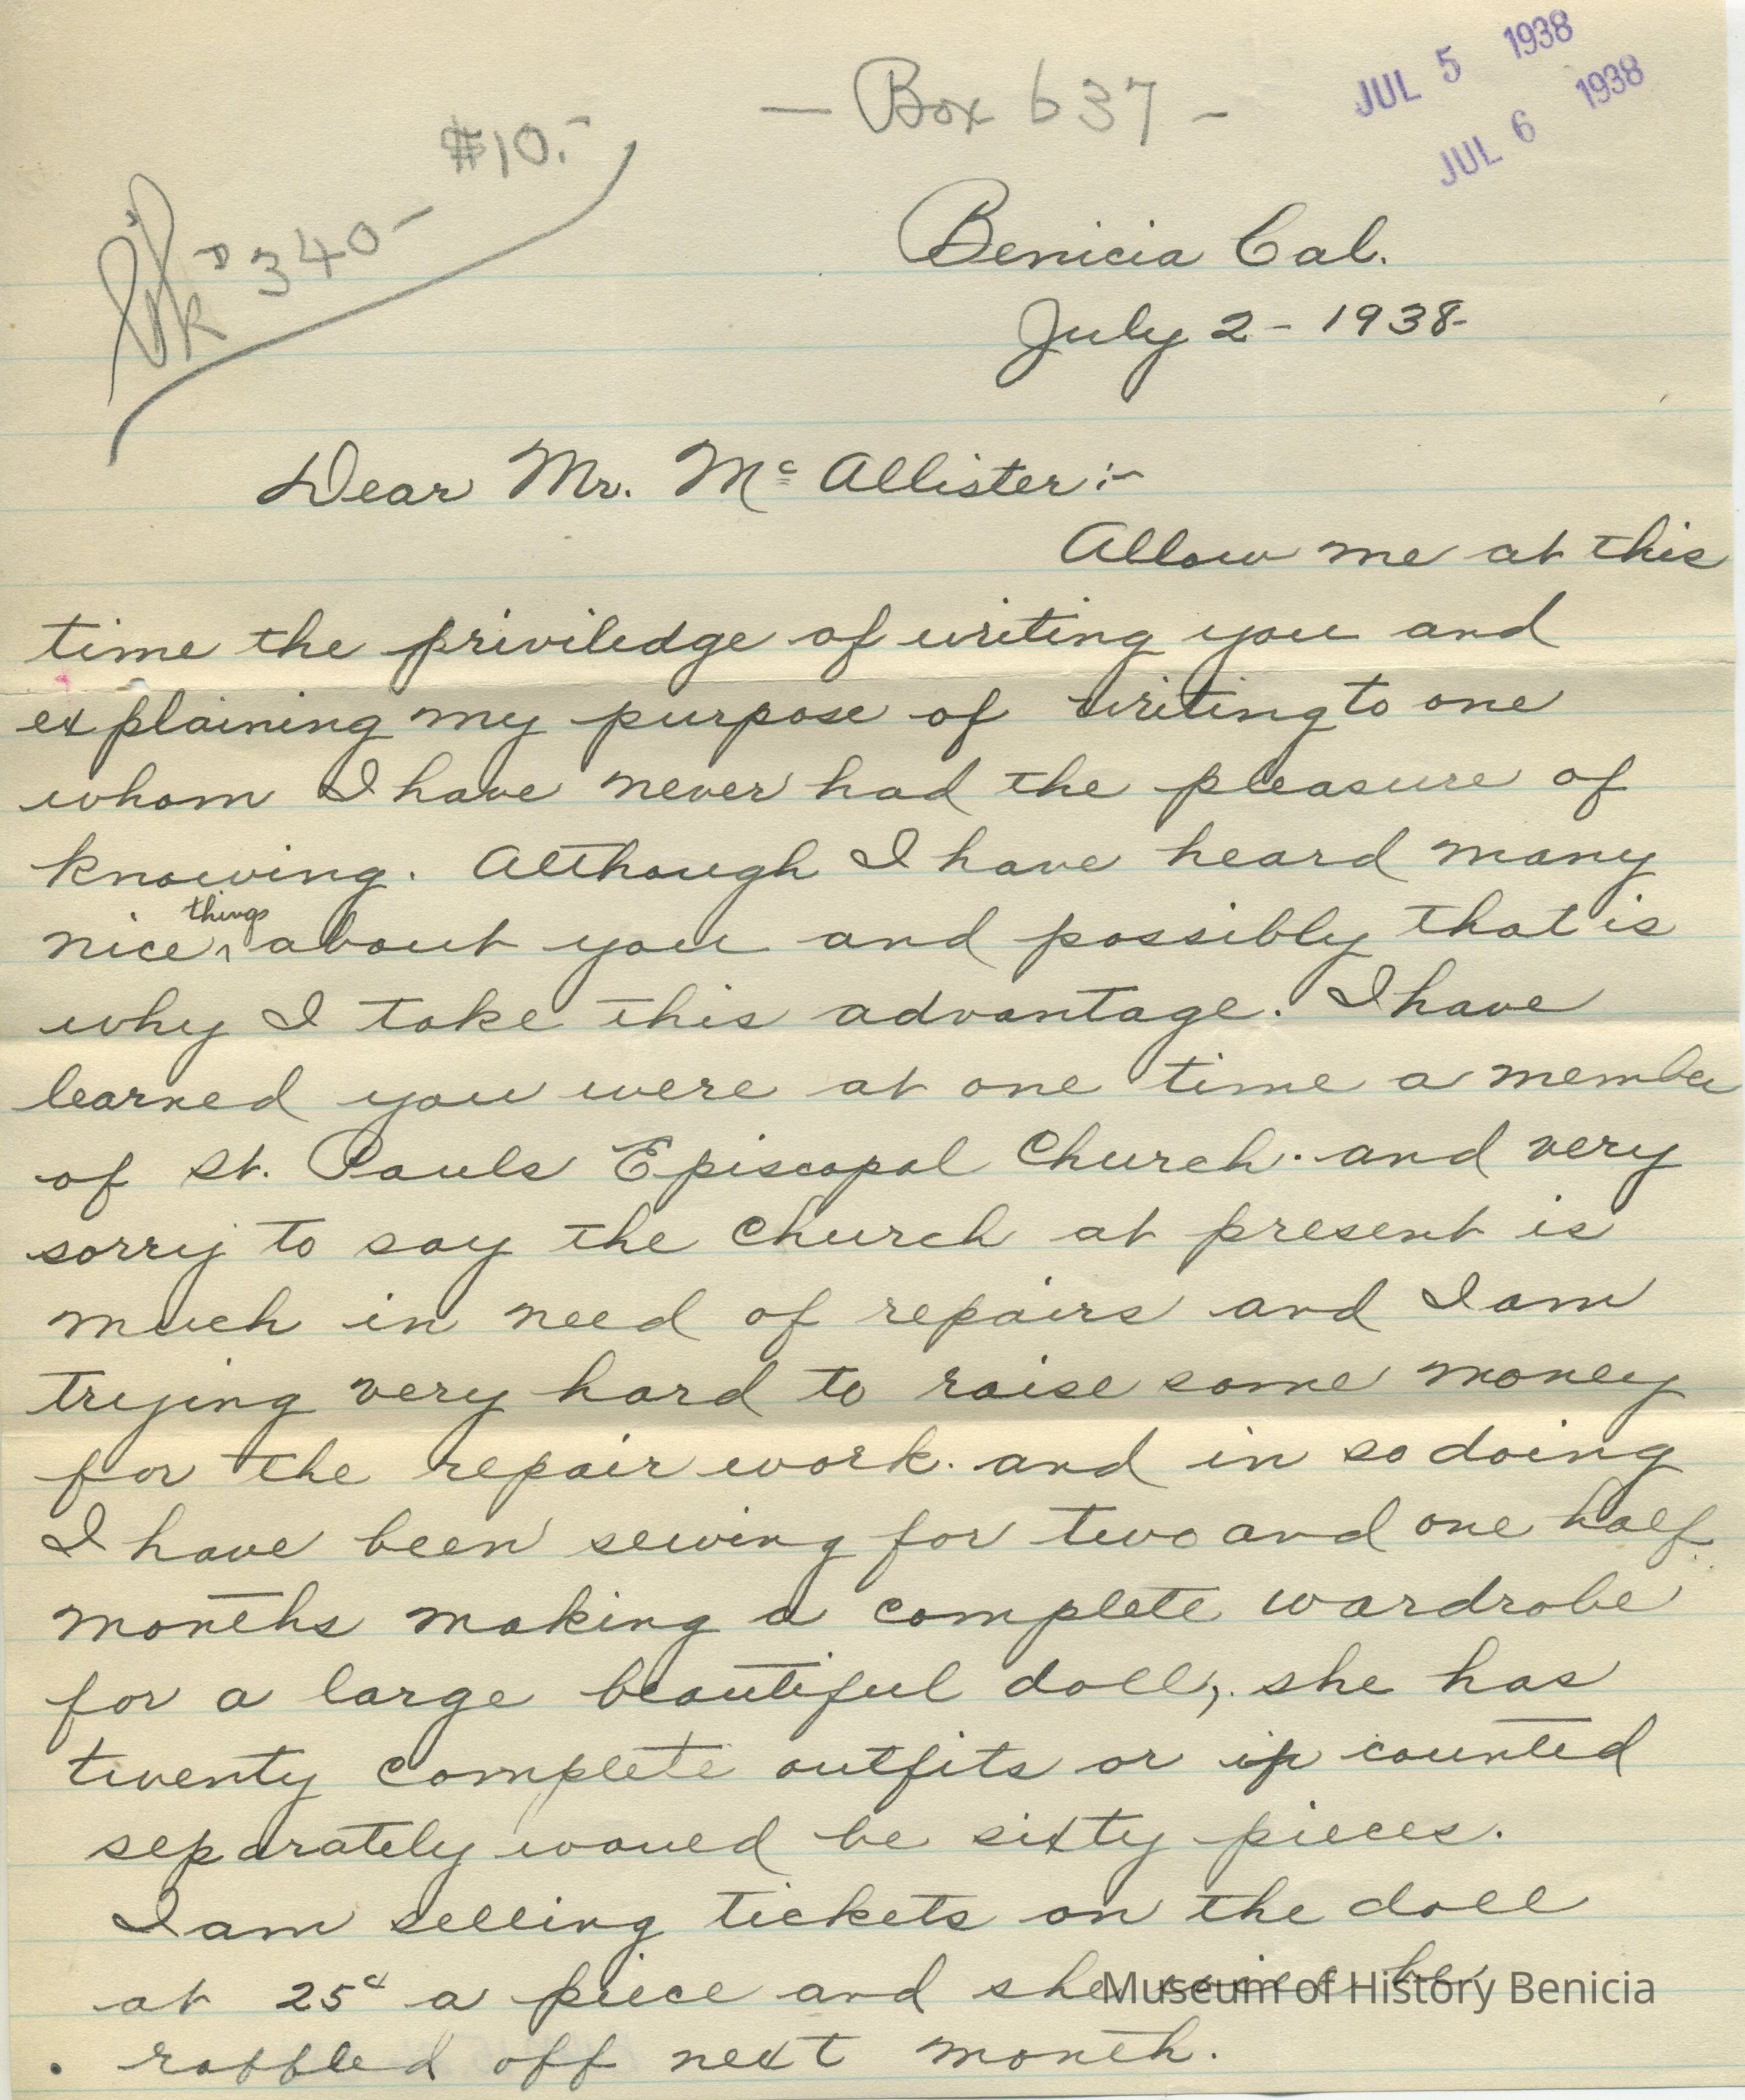 JUL 5 1938
JUL 6 1938
— Box 637 —
$10.-
OK 340-
Benicia Cal.
July 2 - 1938-
Dear Mr. Mc Allister:-
Allow me at this
time the priviledge of writing you and
explaining my purpose of writing to one
whom I have never had the pleasure of
knowing. Although I have heard many
nice things about you and possibly that is
why I take this advantage. I have
learned you were at one time a member
of St. Pauls Episcopal Church. and very
sorry to say the Church at present is
much in need of repairs and I am
trying very hard to raise some money
for the repair work. and in so doing
I have been sewing for two and one half
months making a complete wardrobe
for a large beautiful doll, she has
twenty complete outfits or if counted
separately would be sixty pieces.
I am selling tickets on the doll
at 25¢ a piece and she will be
raffled off next month.
Museum of History Benicia